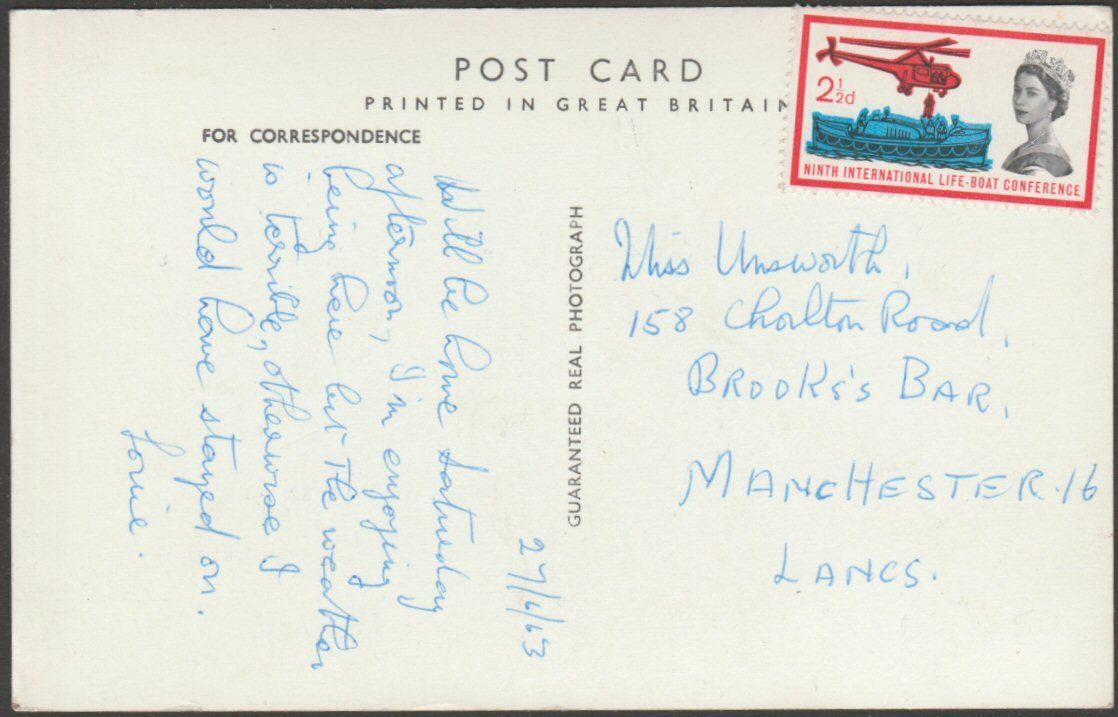 POST CARD
PRINTED IN GREAT BRITAIN
FOR CORRESPONDENCE
2½d
NINTH INTERNATIONAL LIFE-BOAT CONFERENCE
27/6/63
Will be home Saturday
afternoon, I'm enjoying
being here but the weather
is terrible, otherwise I
would have stayed on.
Lorie.
GUARANTEED REAL PHOTOGRAPH
Miss Unsworth,
158 Chorlton Road,
BROOKS'S BAR,
MANCHESTER.16
LANCS.